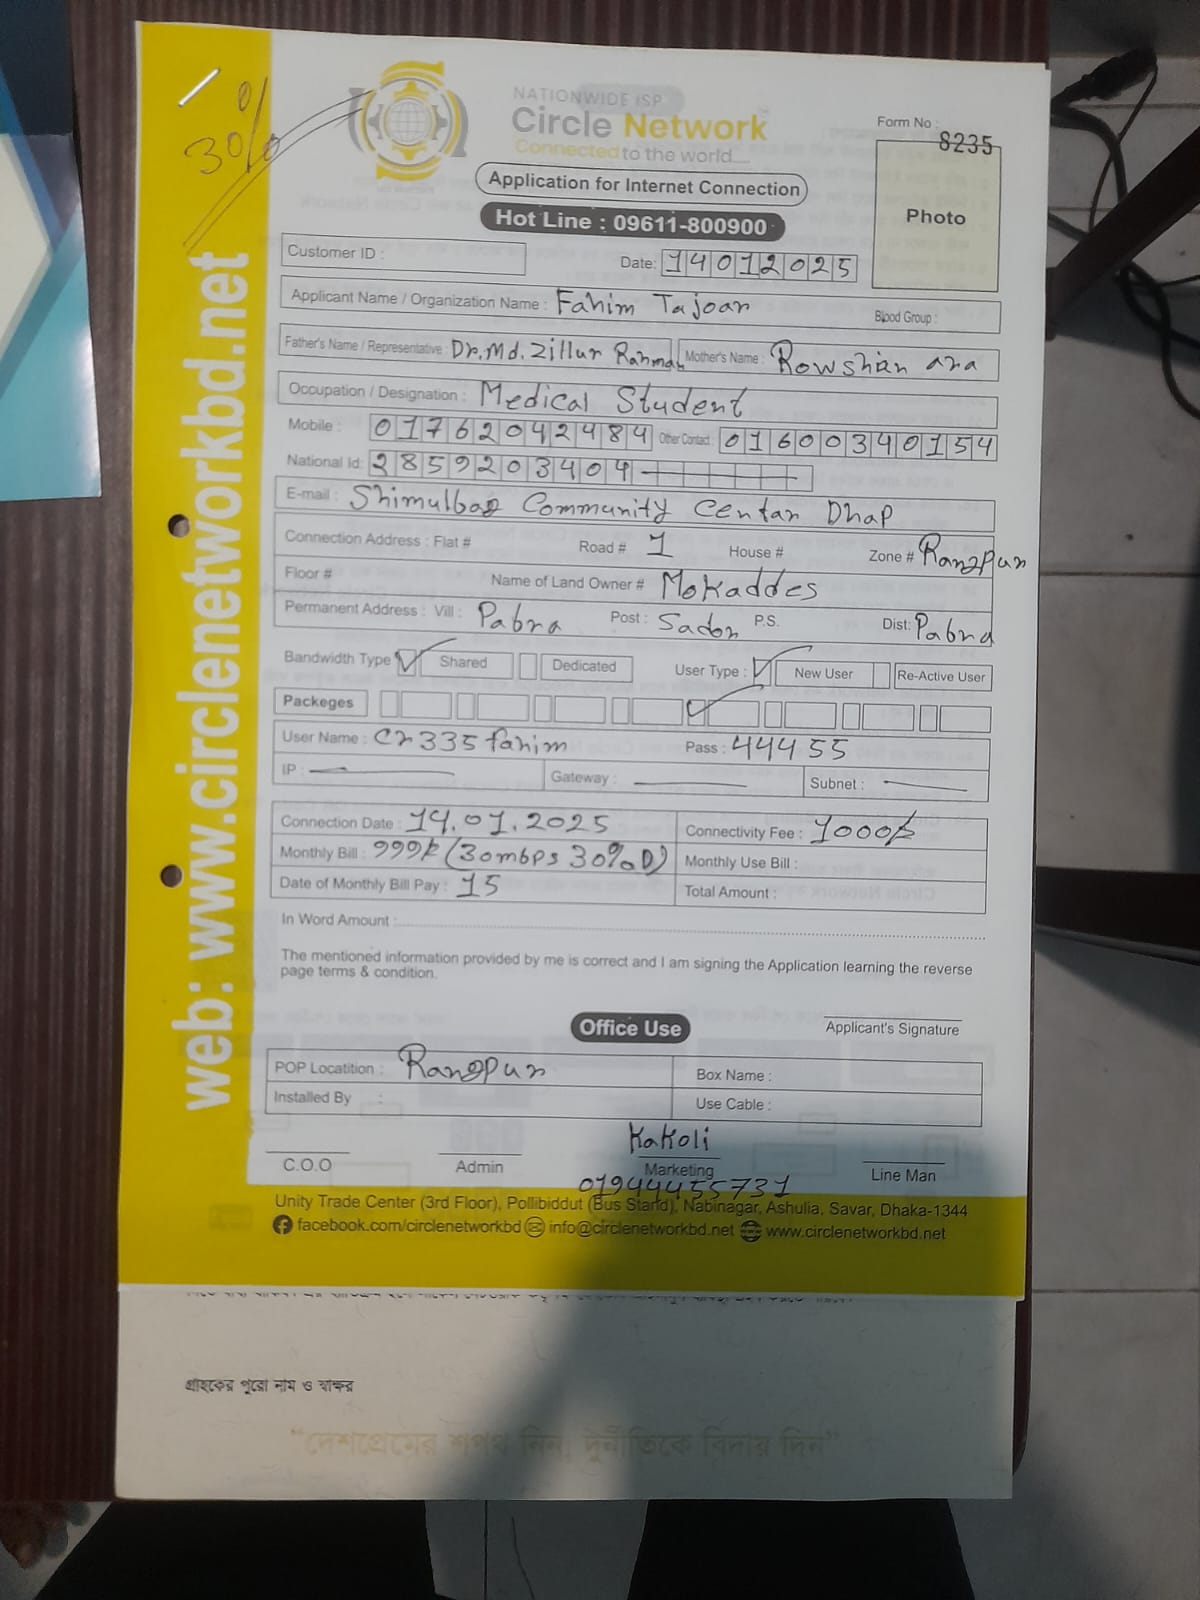 30%
NATIONWIDE ISP
Circle Network
Connected to the world....
Form No :
8235
Application for Internet Connection
Hot Line : 09611-800900
Photo
Customer ID :
Date: 14012025
Applicant Name / Organization Name : Fahim Tajoar
Blood Group :
Father's Name / Representative : Dr.Md.Zillur Rahman Mother's Name : Rowshan ara
Occupation / Designation : Medical Student
Mobile : 01762042484 Other Contact : 01600340154
National Id: 2859203404
E-mail : Shimulbag Community Centar Dhap
Connection Address : Flat # Road # 1 House # Zone # Rangpur
Floor # Name of Land Owner # Mokaddes
Permanent Address : Vill : Pabna Post : Sador P.S. Dist: Pabna
Bandwidth Type Shared Dedicated User Type : New User Re-Active User
Packeges
User Name : Cr335fahim Pass : 44455
IP : Gateway : Subnet :
Connection Date : 14.01.2025 Connectivity Fee : 1000/-
Monthly Bill : 999/- (30mbps 30% D) Monthly Use Bill :
Date of Monthly Bill Pay : 15 Total Amount :
In Word Amount :
The mentioned information provided by me is correct and I am signing the Application learning the reverse
page terms & condition.
Office Use
Applicant's Signature
POP Locatition : Rangpur Box Name :
Installed By : Use Cable :
Kakoli
C.O.O Admin Marketing Line Man
01944455731
Unity Trade Center (3rd Floor), Pollibiddut (Bus Stand), Nabinagar, Ashulia, Savar, Dhaka-1344
facebook.com/circlenetworkbd info@circlenetworkbd.net www.circlenetworkbd.net
web: www.circlenetworkbd.net
গ্রাহকের পুরো নাম ও স্বাক্ষর
“দেশপ্রেমের শপথ নিন, দুর্নীতিকে বিদায় দিন”